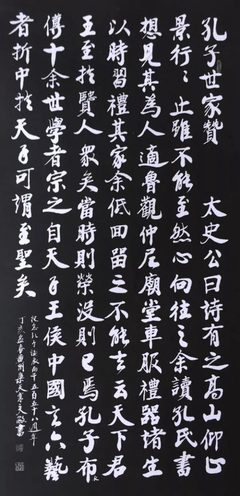 孔子世家贊 太史公曰詩有之高山仰止
景行行止雖不能至然心向往之余讀孔氏書
想見其為人適魯觀仲尼廟堂車服禮器諸生
以時習禮其家余低回留之不能去云天下君
王至於賢人眾矣當時則榮沒則已焉孔子布衣
傳十余世學者宗之自天子王侯中國言六藝
者折中於夫子可謂至聖矣